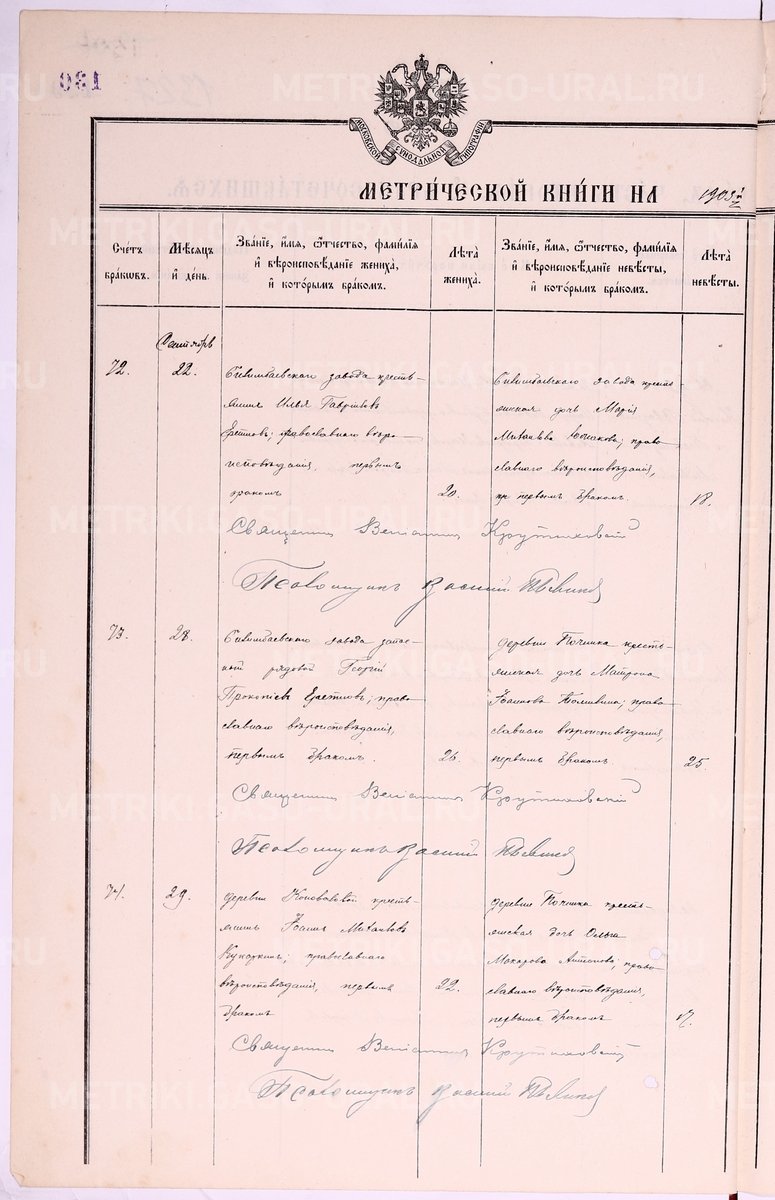 130
МОСКОВСКОЙ СѴНОДАЛЬНОЙ ТИПОГРАФІИ
МЕТРИ́ЧЕСКОЙ КНИ́ГИ НА 1903
Сче́тъ бра́кѡвъ.
Мѣ́сяцъ и҆ де́нь.
Зва́нїе, и҆́мя, ѻ҆́тчество, фами́лїя
и҆ вѣроисповѣ́данїе жениха̀,
и҆ кото́рымъ бра́комъ.
Лѣ́та жениха̀.
Зва́нїе, и҆́мя, ѻ҆́тчество, фами́лїя
и҆ вѣроисповѣ́данїе невѣ́сты,
и҆ кото́рымъ бра́комъ.
Лѣ́та невѣ́сты.
Сентябрь
72.
22.
Билимбаевскаго завода кресть-
янинъ Илья Гавріиловъ
православнаго вѣро-
исповѣданія, первымъ
бракомъ
20.
Билимбаевскаго завода кресть-
янская дочь Марія
Михаилова православнаго вѣроисповѣданія,
первымъ бракомъ.
18.
Священникъ Веніаминъ Крутиховскій
Псаломщикъ Василій
73.
28.
Билимбаевскаго завода запас-
ной рядовой Георгій
Прокопіевъ право-
славнаго вѣроисповѣданія,
первымъ бракомъ.
26.
деревни Починка кресть-
янская дочь Матрона
Іоаннова право-
славнаго вѣроисповѣданія,
первымъ бракомъ
25.
Священникъ Веніаминъ Крутиховскій
Псаломщикъ Василій
74.
29.
деревни Коноваловой кресть-
янинъ Іоаннъ Михаиловъ
православнаго
вѣроисповѣданія, первымъ
бракомъ
22.
деревни Починка кресть-
янская дочь Ольга
Макарова Антонова; право-
славнаго вѣроисповѣданія,
первымъ бракомъ
17.
Священникъ Веніаминъ Крутиховскій
Псаломщикъ Василій
METRIKI.GASO-URAL.RU